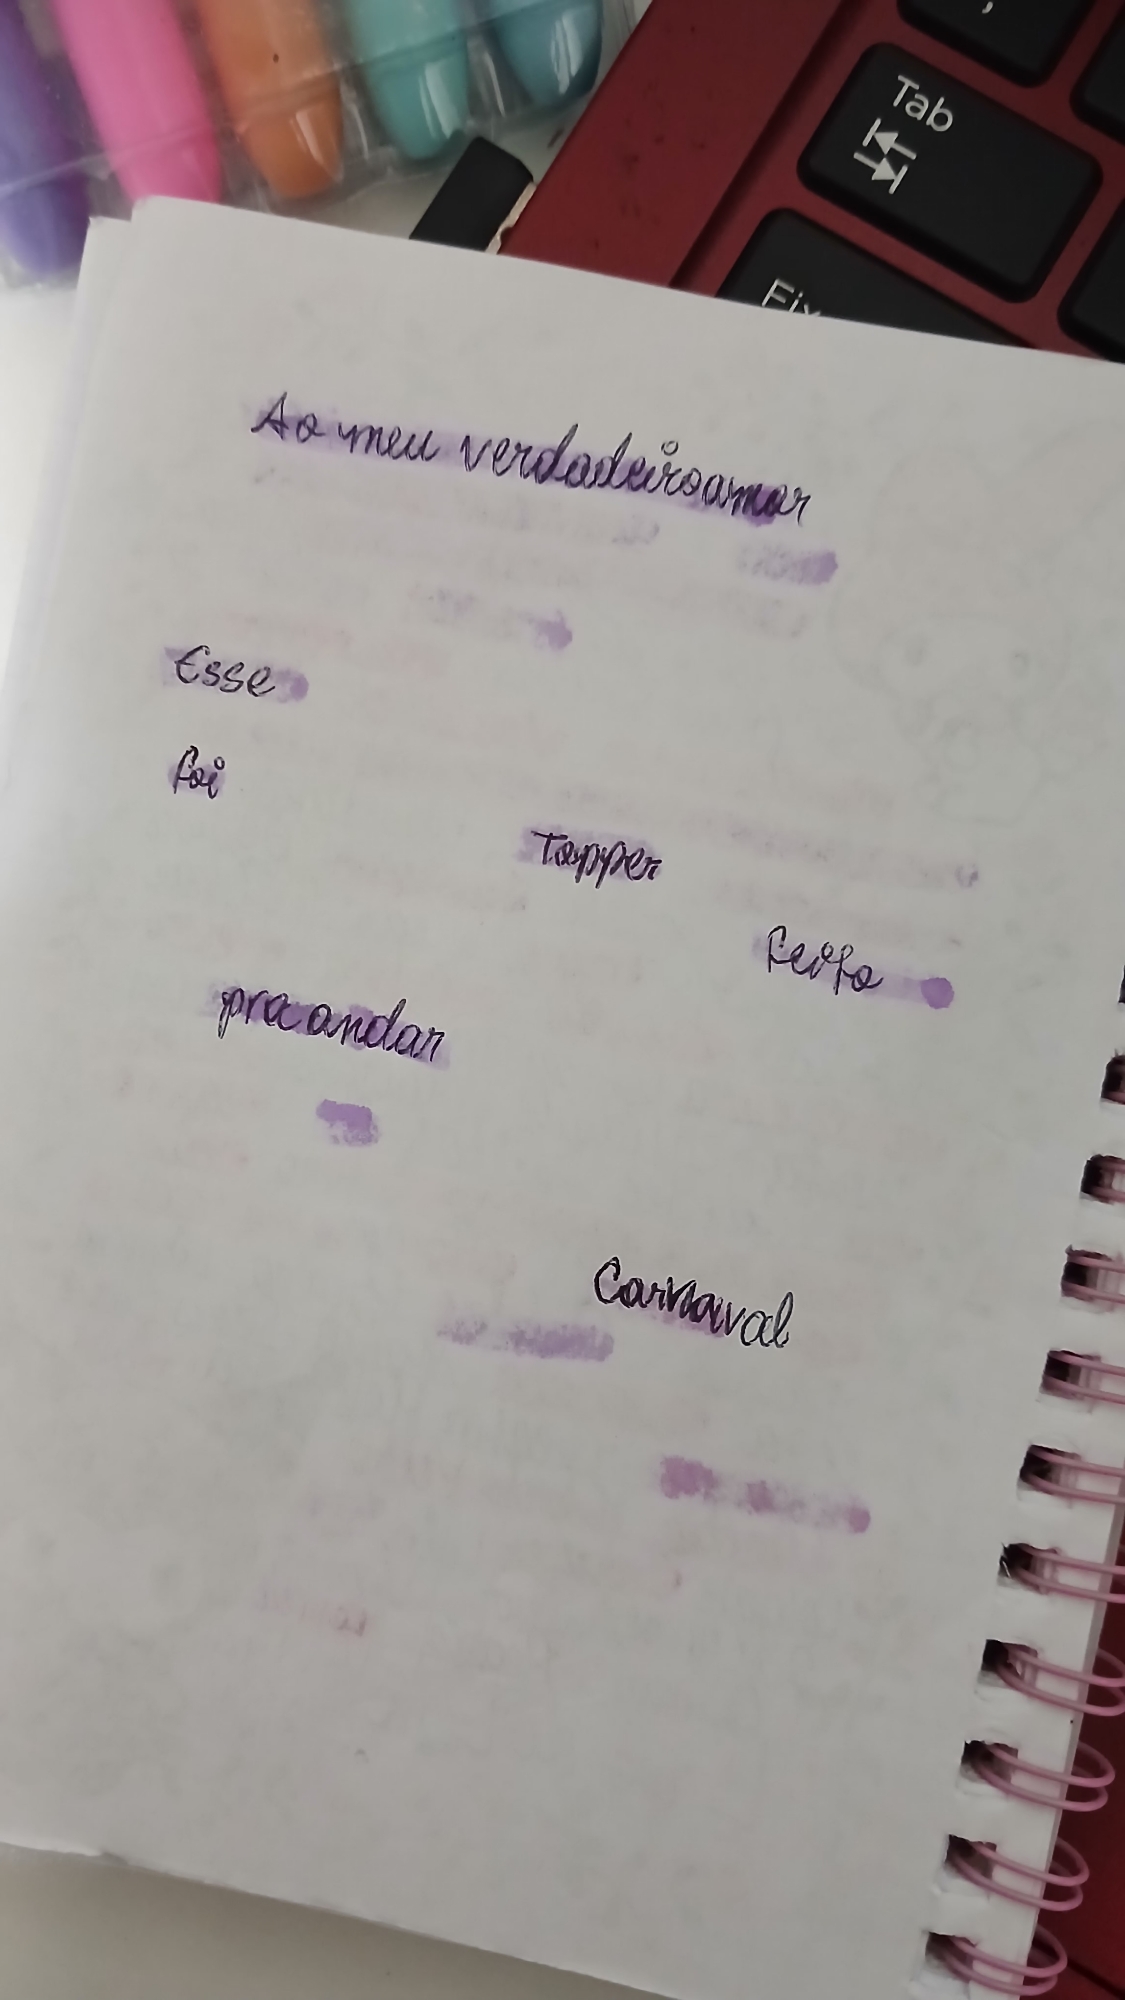 Tab
Fix
Ao meu verdadeiro amor
Esse
foi
Topper
feito
pra andar
Carnaval